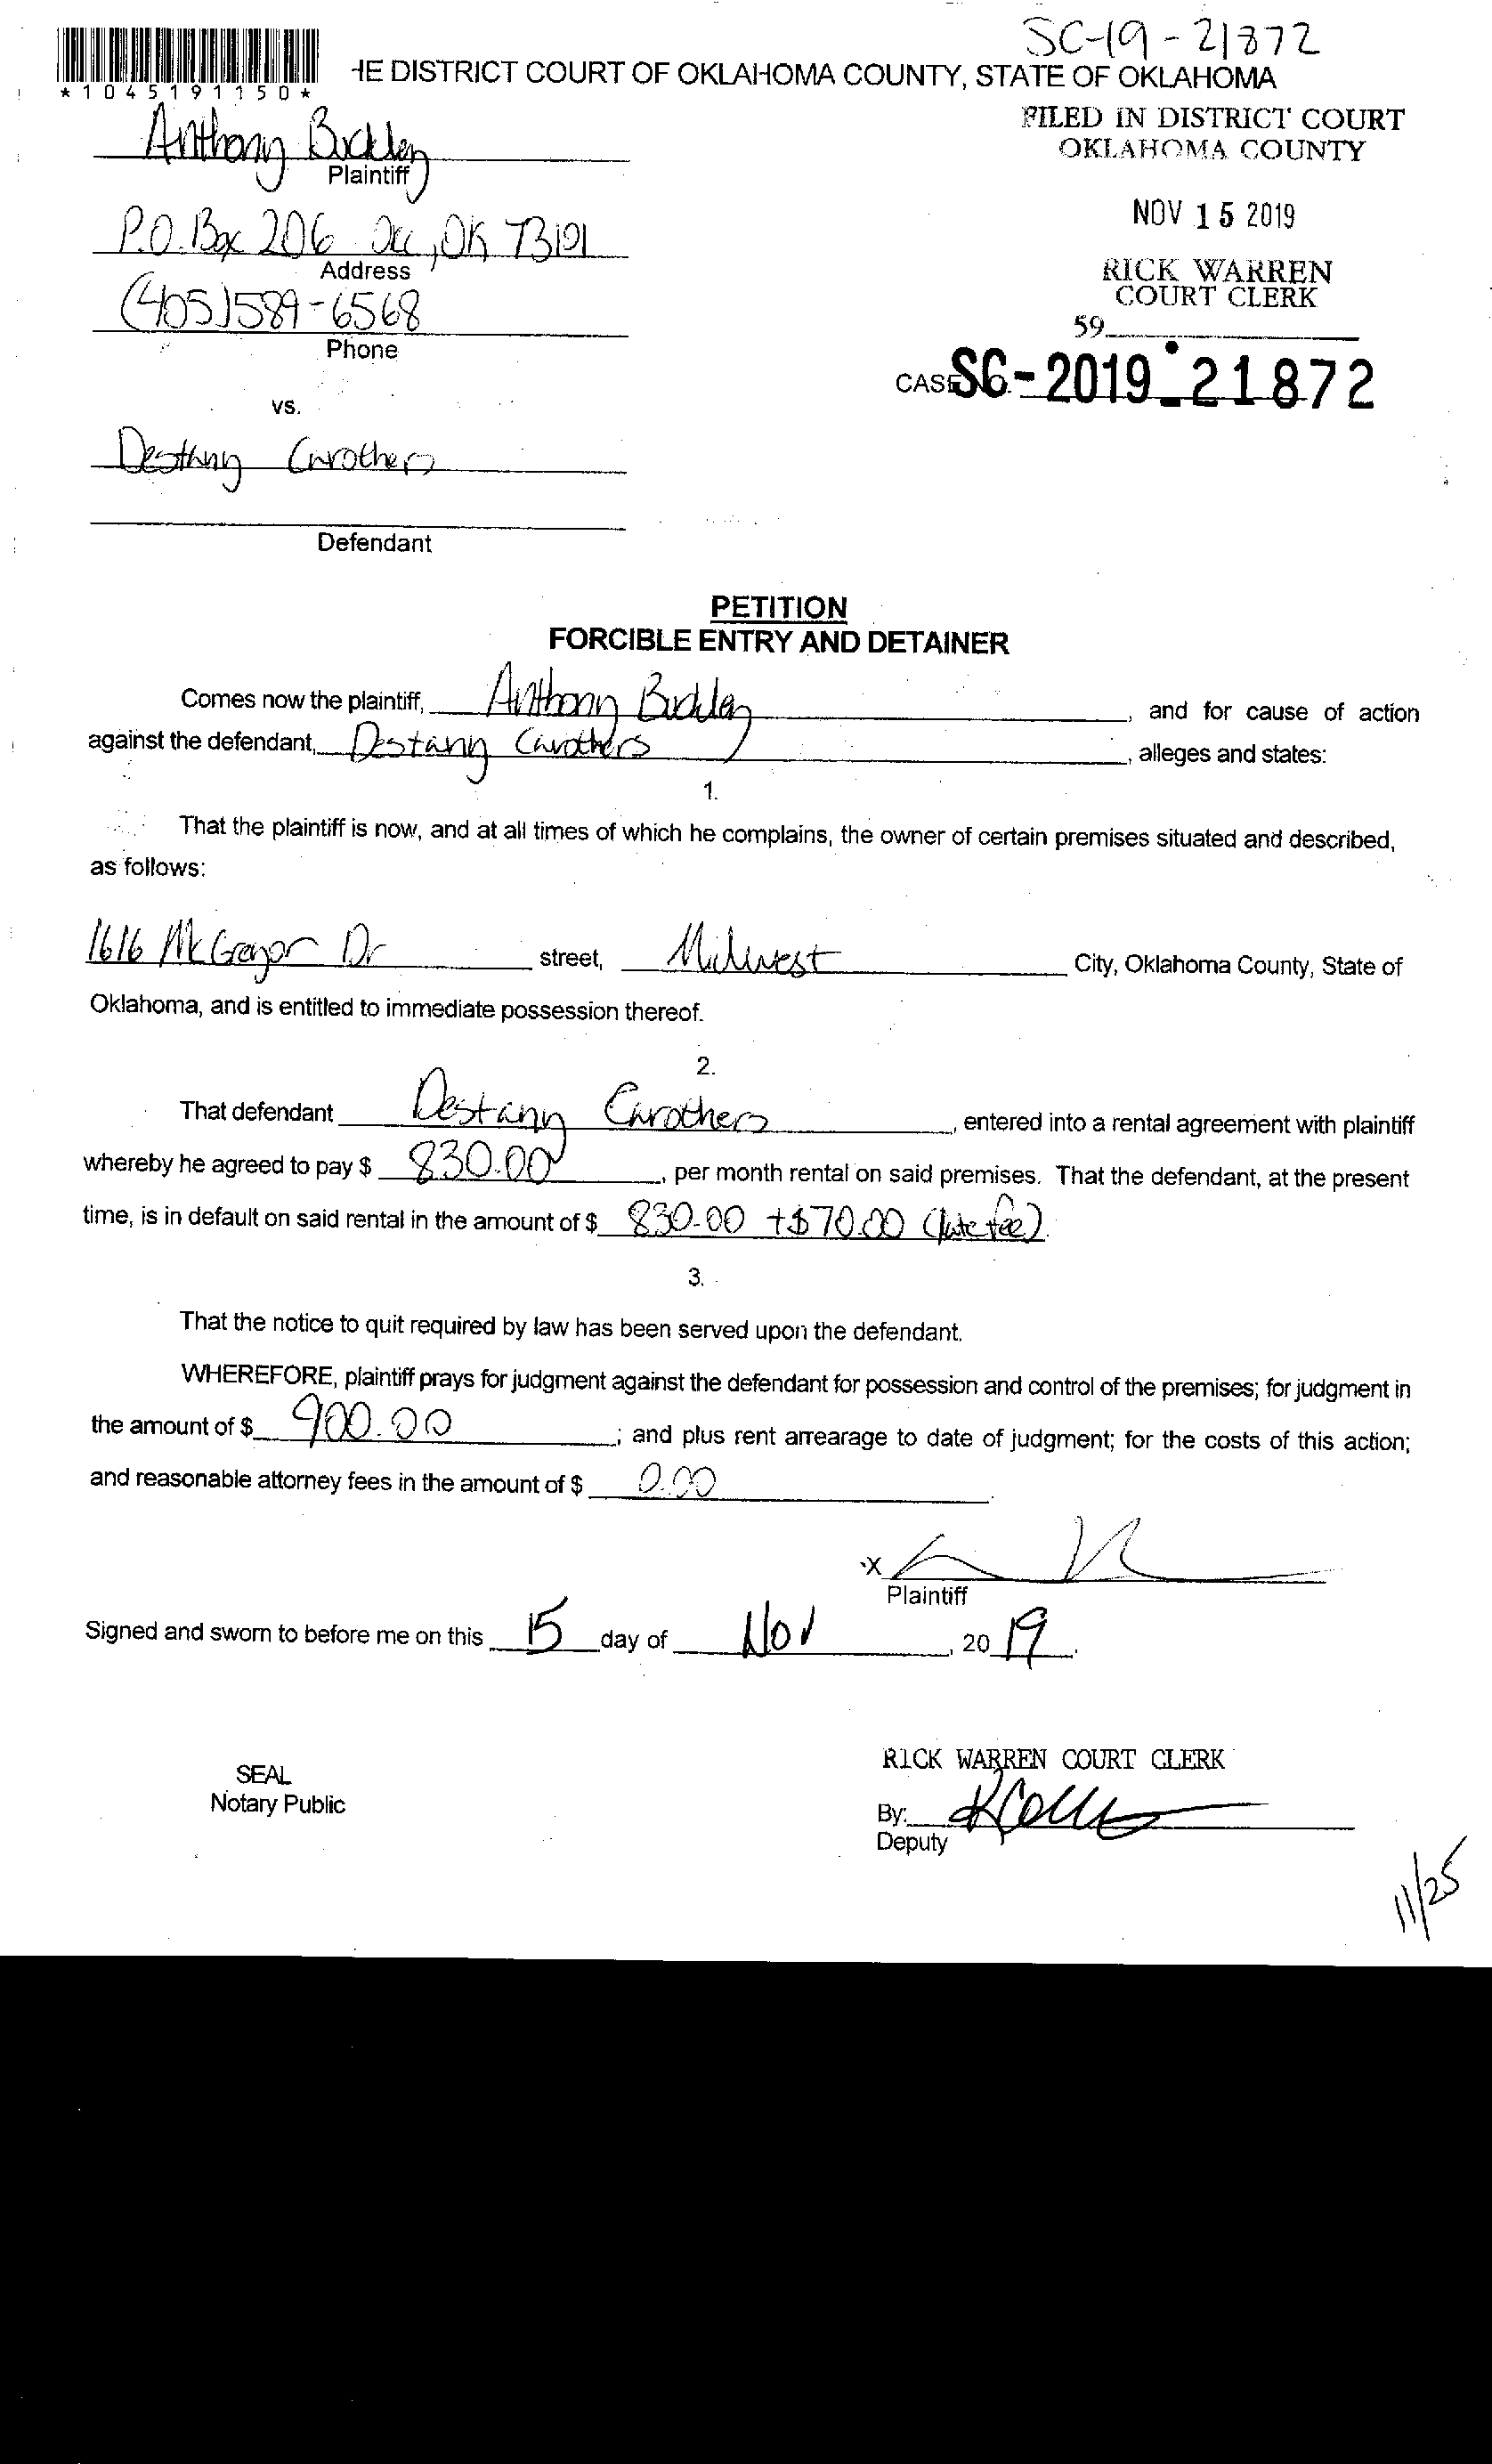 SC-19-21872
HE DISTRICT COURT OF OKLAHOMA COUNTY, STATE OF OKLAHOMA
*1045191150*
FILED IN DISTRICT COURT
OKLAHOMA COUNTY
Anthony Buckley
Plaintiff
NOV 15 2019
P.O. Box 206 OKC, OK 73191
Address
RICK WARREN
COURT CLERK
(405)589-6568
59
Phone
CASE NO. SC-2019-21872
vs.
Destany Carothers
Defendant
PETITION
FORCIBLE ENTRY AND DETAINER
Comes now the plaintiff, Anthony Buckley, and for cause of action
against the defendant, Destany Carothers, alleges and states:
1.
That the plaintiff is now, and at all times of which he complains, the owner of certain premises situated and described,
as follows:
1616 McGregor Dr street, Midwest City, Oklahoma County, State of
Oklahoma, and is entitled to immediate possession thereof.
2.
That defendant Destany Carothers, entered into a rental agreement with plaintiff
whereby he agreed to pay $ 830.00, per month rental on said premises. That the defendant, at the present
time, is in default on said rental in the amount of $ 830.00 + $70.00 (late fee).
3.
That the notice to quit required by law has been served upon the defendant.
WHEREFORE, plaintiff prays for judgment against the defendant for possession and control of the premises; for judgment in
the amount of $ 900.00; and plus rent arrearage to date of judgment; for the costs of this action;
and reasonable attorney fees in the amount of $ 0.00.
X
Plaintiff
Signed and sworn to before me on this 15 day of Nov, 2019.
RICK WARREN COURT CLERK
SEAL
Notary Public
By:
Deputy
11/25